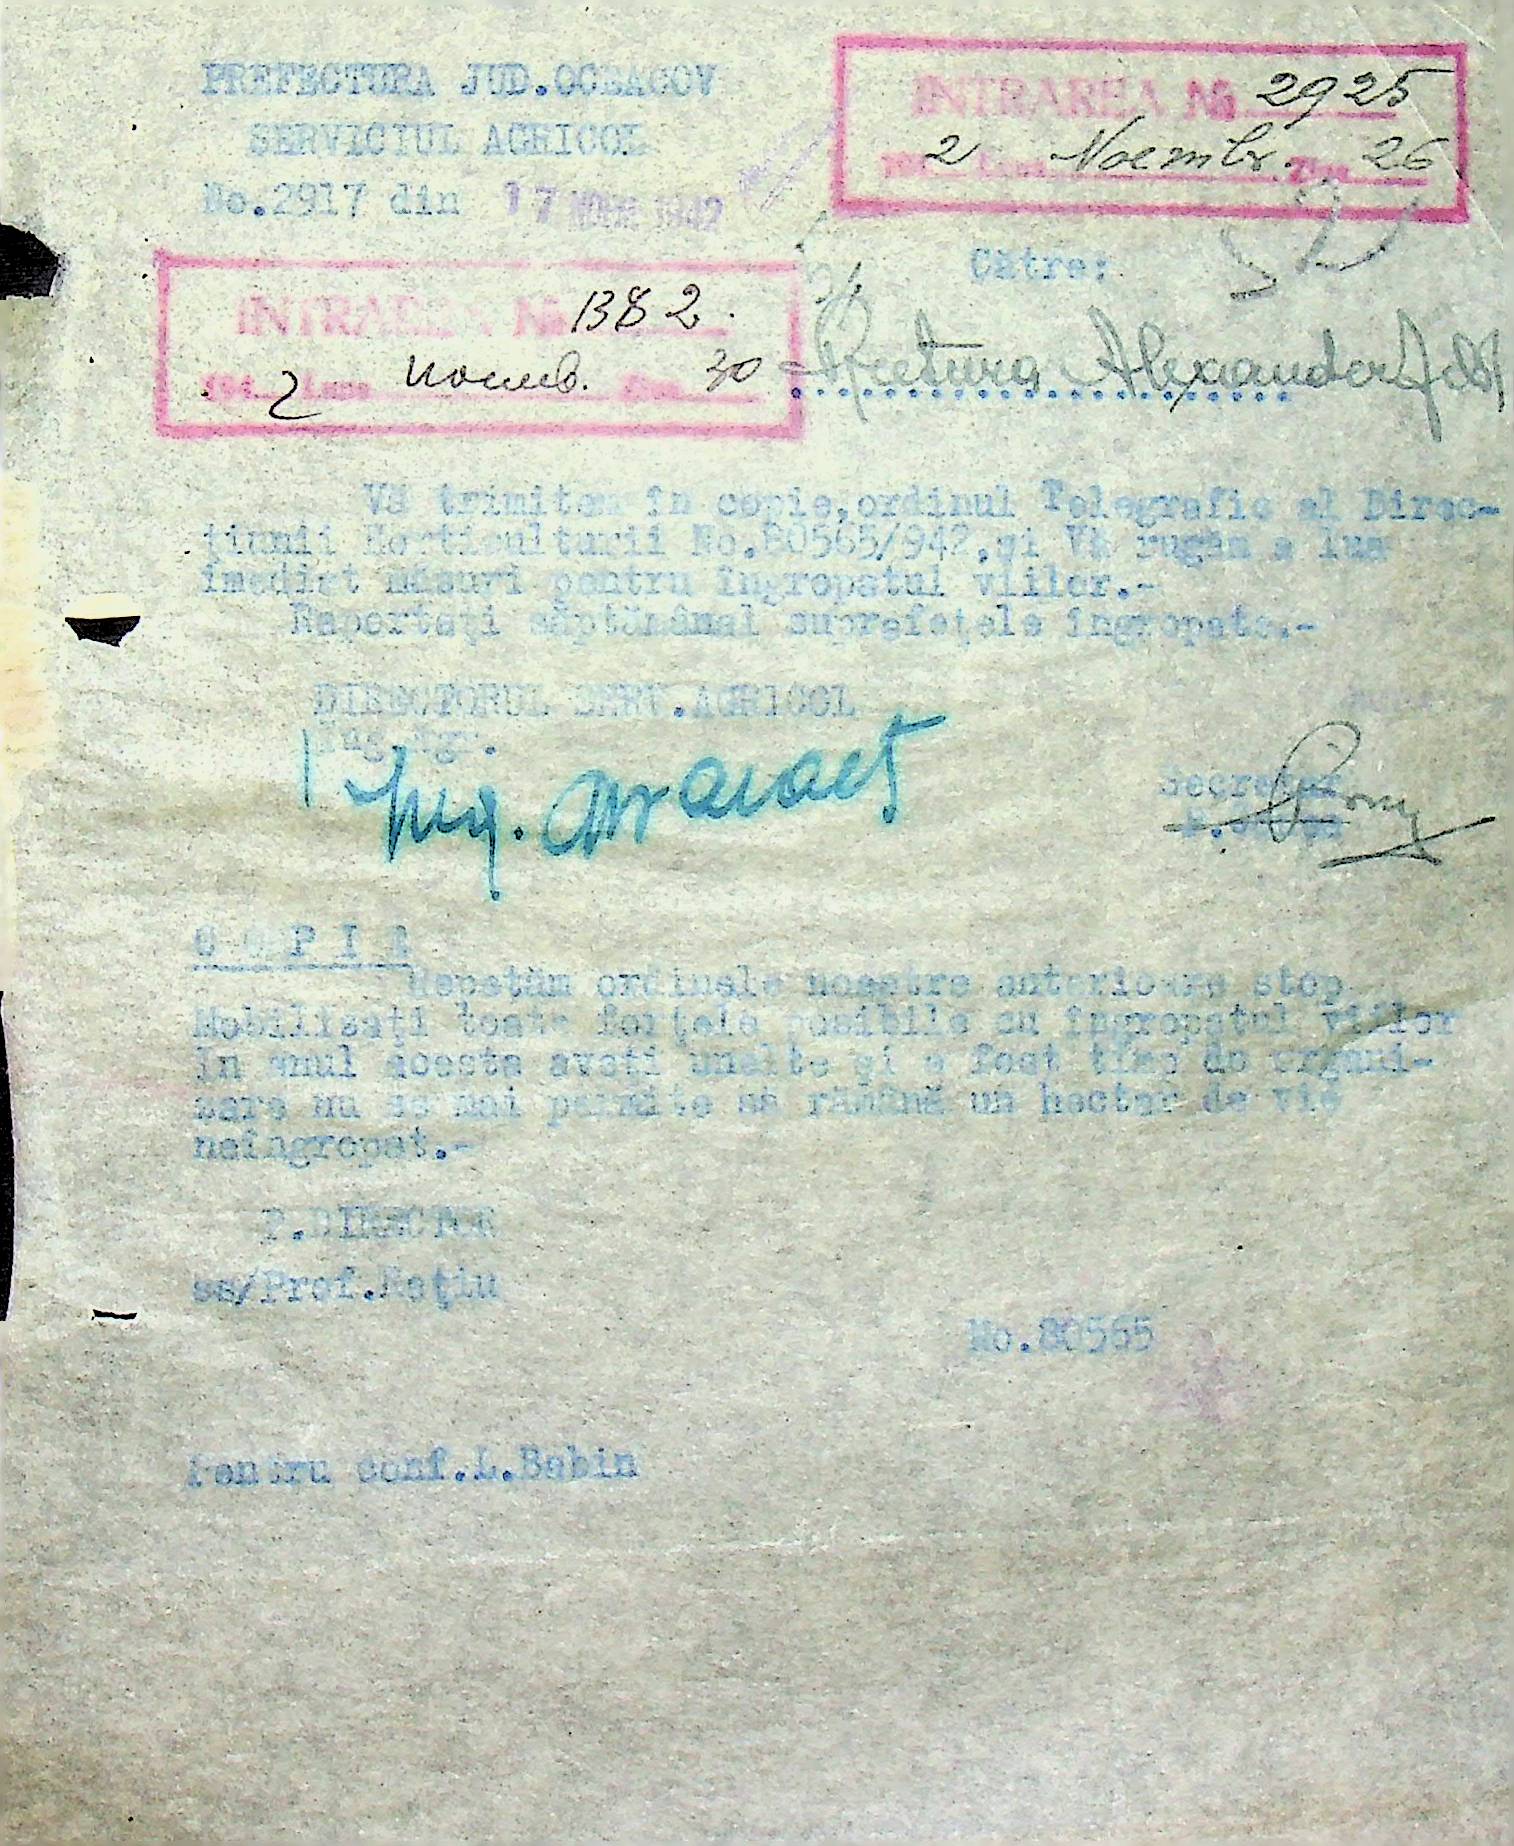 PREFECTURA JUD.OCEACOV
SERVICIUL AGRICOL
No.2917 din 17 NOEM 1942
INTRAREA № 2925
194 2 Luna Noembr. Ziua 26
Către:
INTRAREA № 1382.
194 2 Luna noemb. Ziua 30
Alexanderfeld
Vă trimitem în copie,ordinul Telegrafic al Direc-
ţiunii Horticulturii No.80565/942,şi Vă rugăm a lua
imediat măsuri pentru îngropatul viilor.-
Raportaţi săptămânal suprafeţele îngropate.-
DIRECTORUL SERV.AGRICOL
Ing.Agr.
Ing.
Secretar
C O P I E
Repetăm ordinele noastre anterioare stop
Mobilisaţi toate forţele posibile cu îngropatul viilor
în anul acesta aveţi unelte şi a fost timp de organi-
zare nu se mai permite să rămână un hectar de vie
neîngropat.-
P.DIRECTOR
ss/Prof.Reţiu
No.80565
Pentru conf.L.Babin